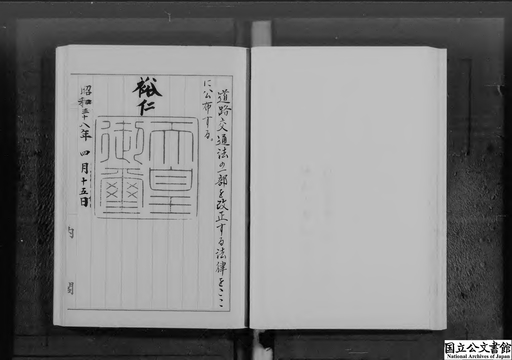 道路交通法の一部を改正する法律をここ
に公布する。
裕仁
天皇
御璽
昭和三十八年四月十五日
内閣
国立公文書館
National Archives of Japan